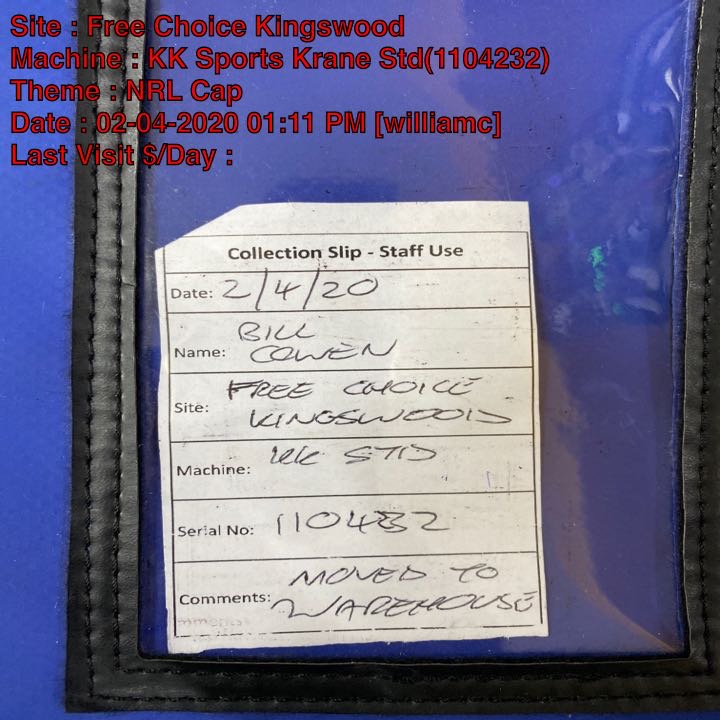 Site : Free Choice Kingswood
Machine : KK Sports Krane Std(1104232)
Theme : NRL Cap
Date : 02-04-2020 01:11 PM [williamc]
Last Visit $/Day :
Collection Slip - Staff Use
Date: 2/4/20
BILL
Name: COWEN
FREE CHOICE
Site: KINGSWOOD
Machine: KK STD
Serial No: 110432
MOVED TO
Comments: WAREHOUSE